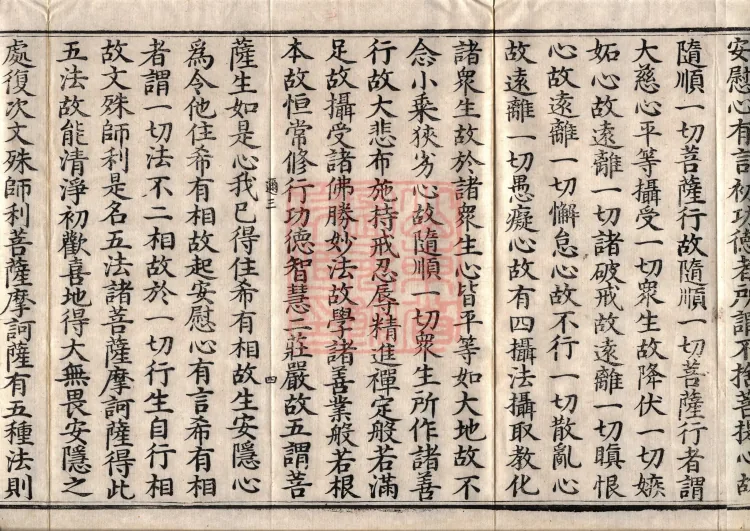 安慰心有言初功德者所謂不捨菩提心故
隨順一切菩薩行故隨順一切菩薩行者謂
大慈心平等攝受一切眾生故降伏一切嫉
妬心故遠離一切諸破戒故遠離一切瞋恨
心故遠離一切懈怠心故不行一切散亂心
故遠離一切愚癡心故有四攝法攝取教化
諸眾生故於諸眾生心皆平等如大地故不
念小乘狹劣心故隨順一切眾生所作諸善
行故大悲布施持戒忍辱精進禪定般若滿
足故攝受諸佛勝妙法故學諸善業般若根
本故恒常修行功德智慧二莊嚴故五謂菩
彌三
四
薩生如是心我已得住希有相故生安隱心
為令他住希有相故起安慰心有言希有相
者謂一切法不二相故於一切行生自行相
故文殊師利是名五法諸菩薩摩訶薩得此
五法故能清淨初歡喜地得大無畏安隱之
處復次文殊師利菩薩摩訶薩有五種法則